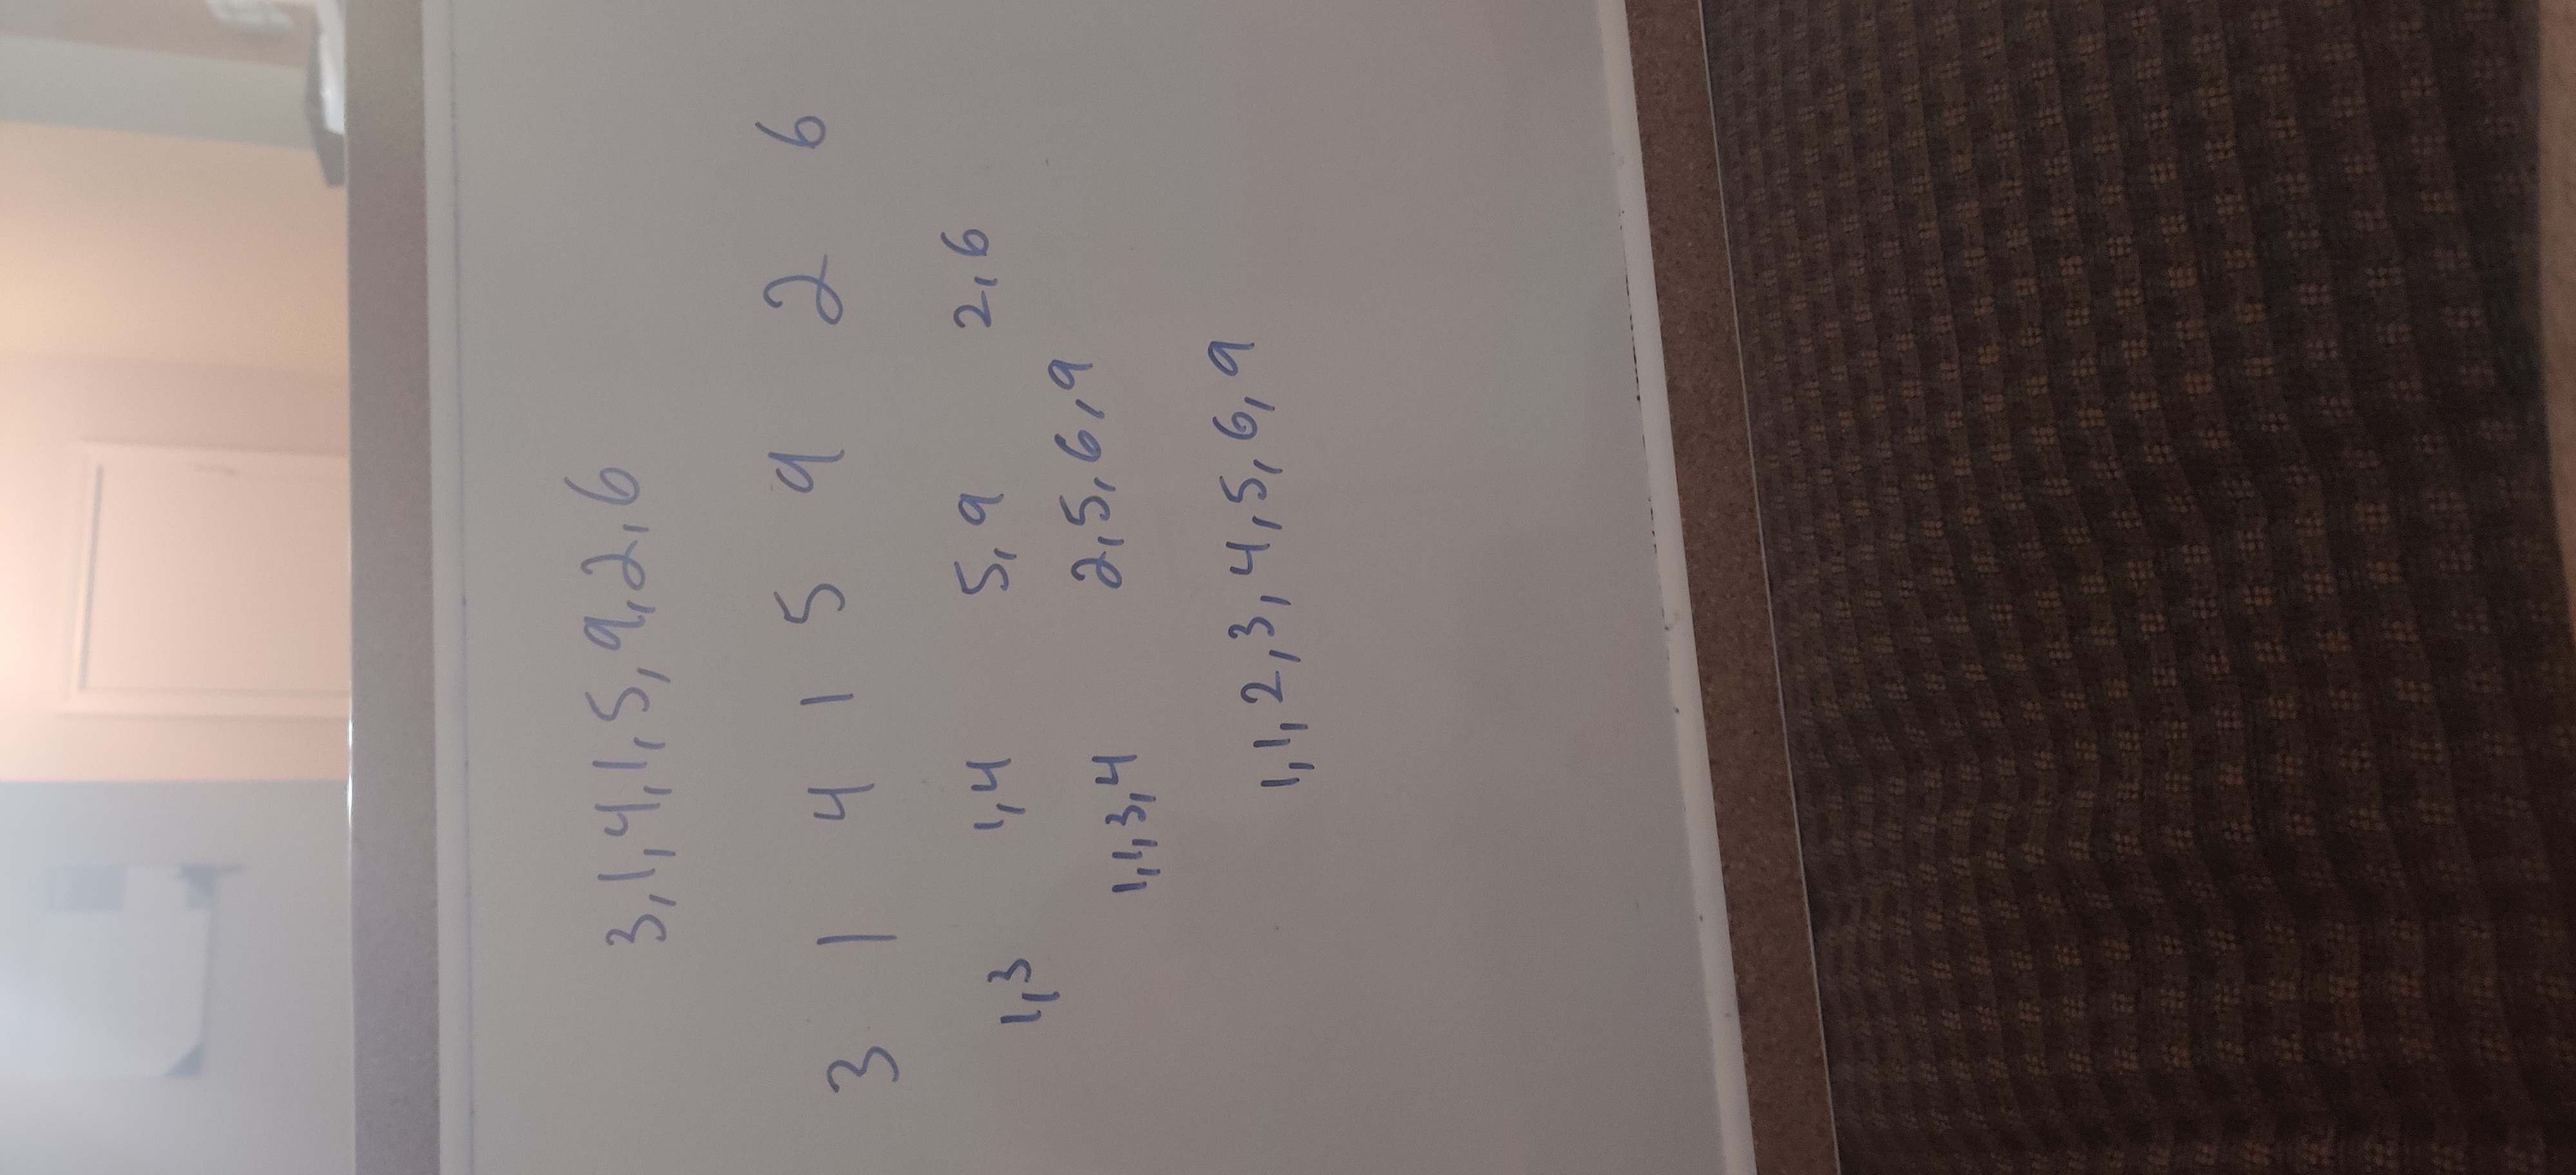 3,1,4,1,5,9,2,6
3 1 4 1 5 9 2 6
1,3 1,4 5,9 2,6
1,1,3,4 2,5,6,9
1,1,2,3,4,5,6,9